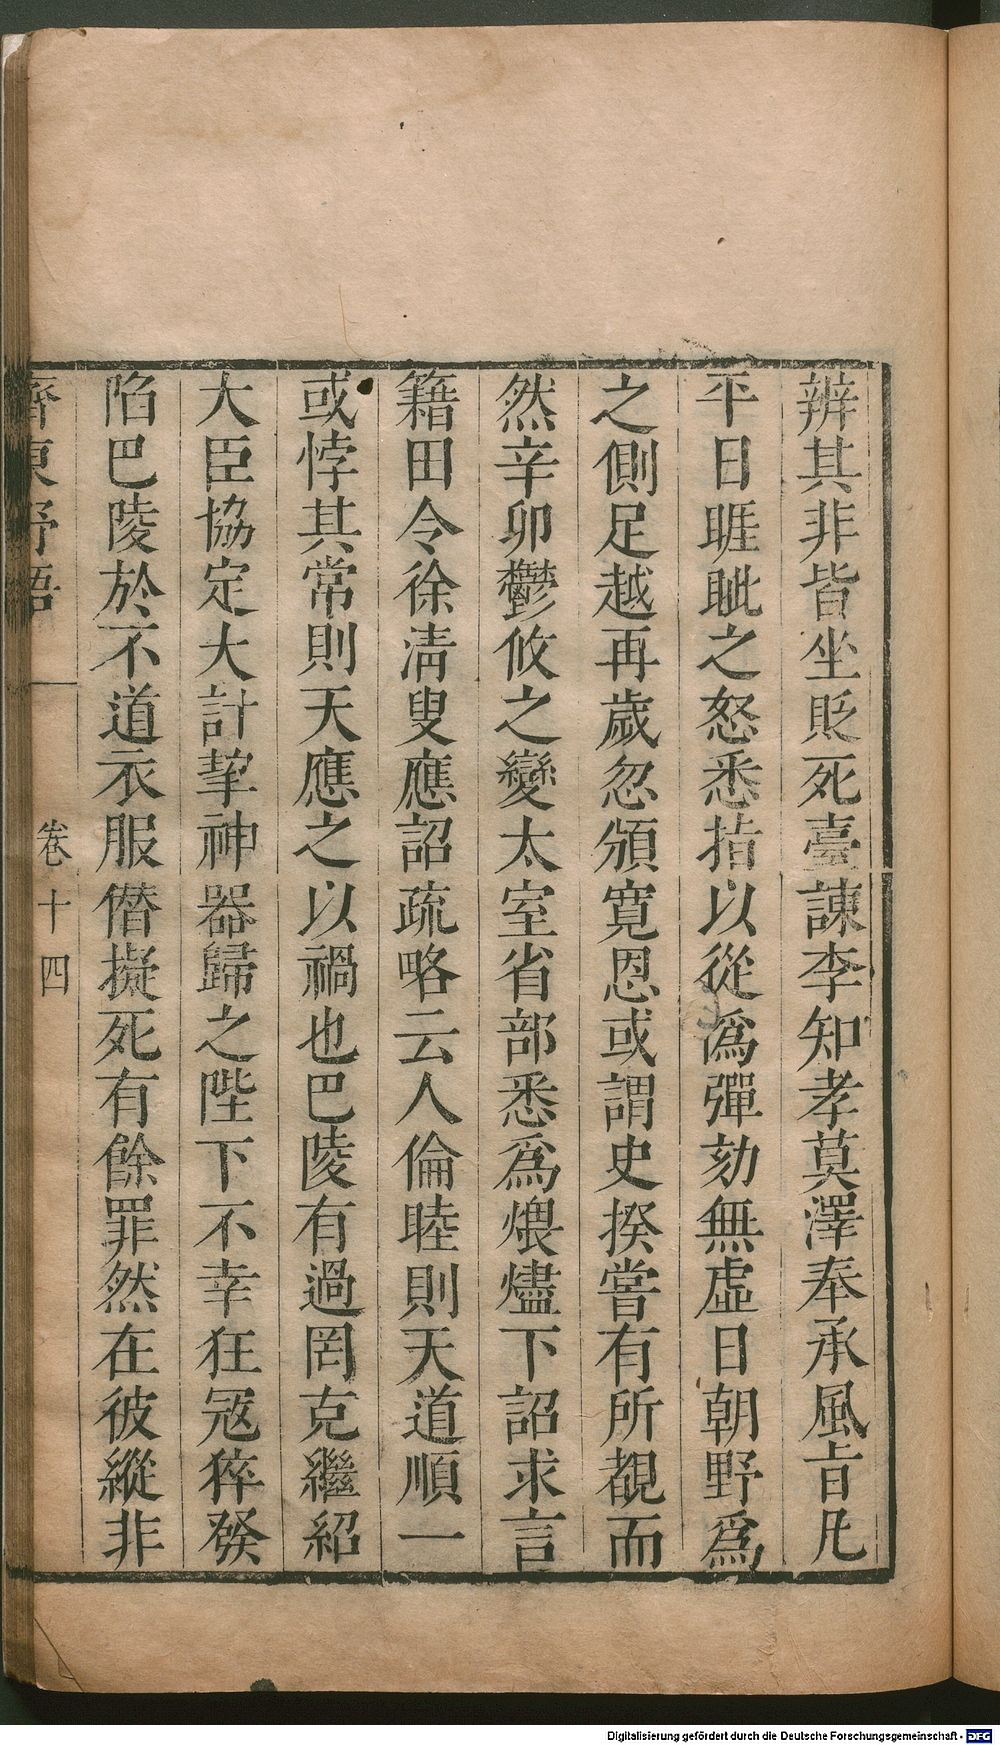 辨其非皆坐貶死臺諫李知孝莫澤奉承風旨凡
平日睚眦之怒悉指以從爲彈劾無虛日朝野爲
之側足越再歲忽頒寬恩或謂史揆嘗有所覩而
然辛卯鬱攸之變太室省部悉爲煨燼下詔求言
籍田令徐淸叟應詔疏略云人倫睦則天道順一
或悖其常則天應之以禍也巴陵有過罔克繼紹
大臣協定大計挈神器歸之陛下不幸狂冦猝發
陷巴陵於不道衣服僭擬死有餘罪然在彼縱非
齊東野語
卷十四
Digitalisierung gefördert durch die Deutsche Forschungsgemeinschaft - DFG